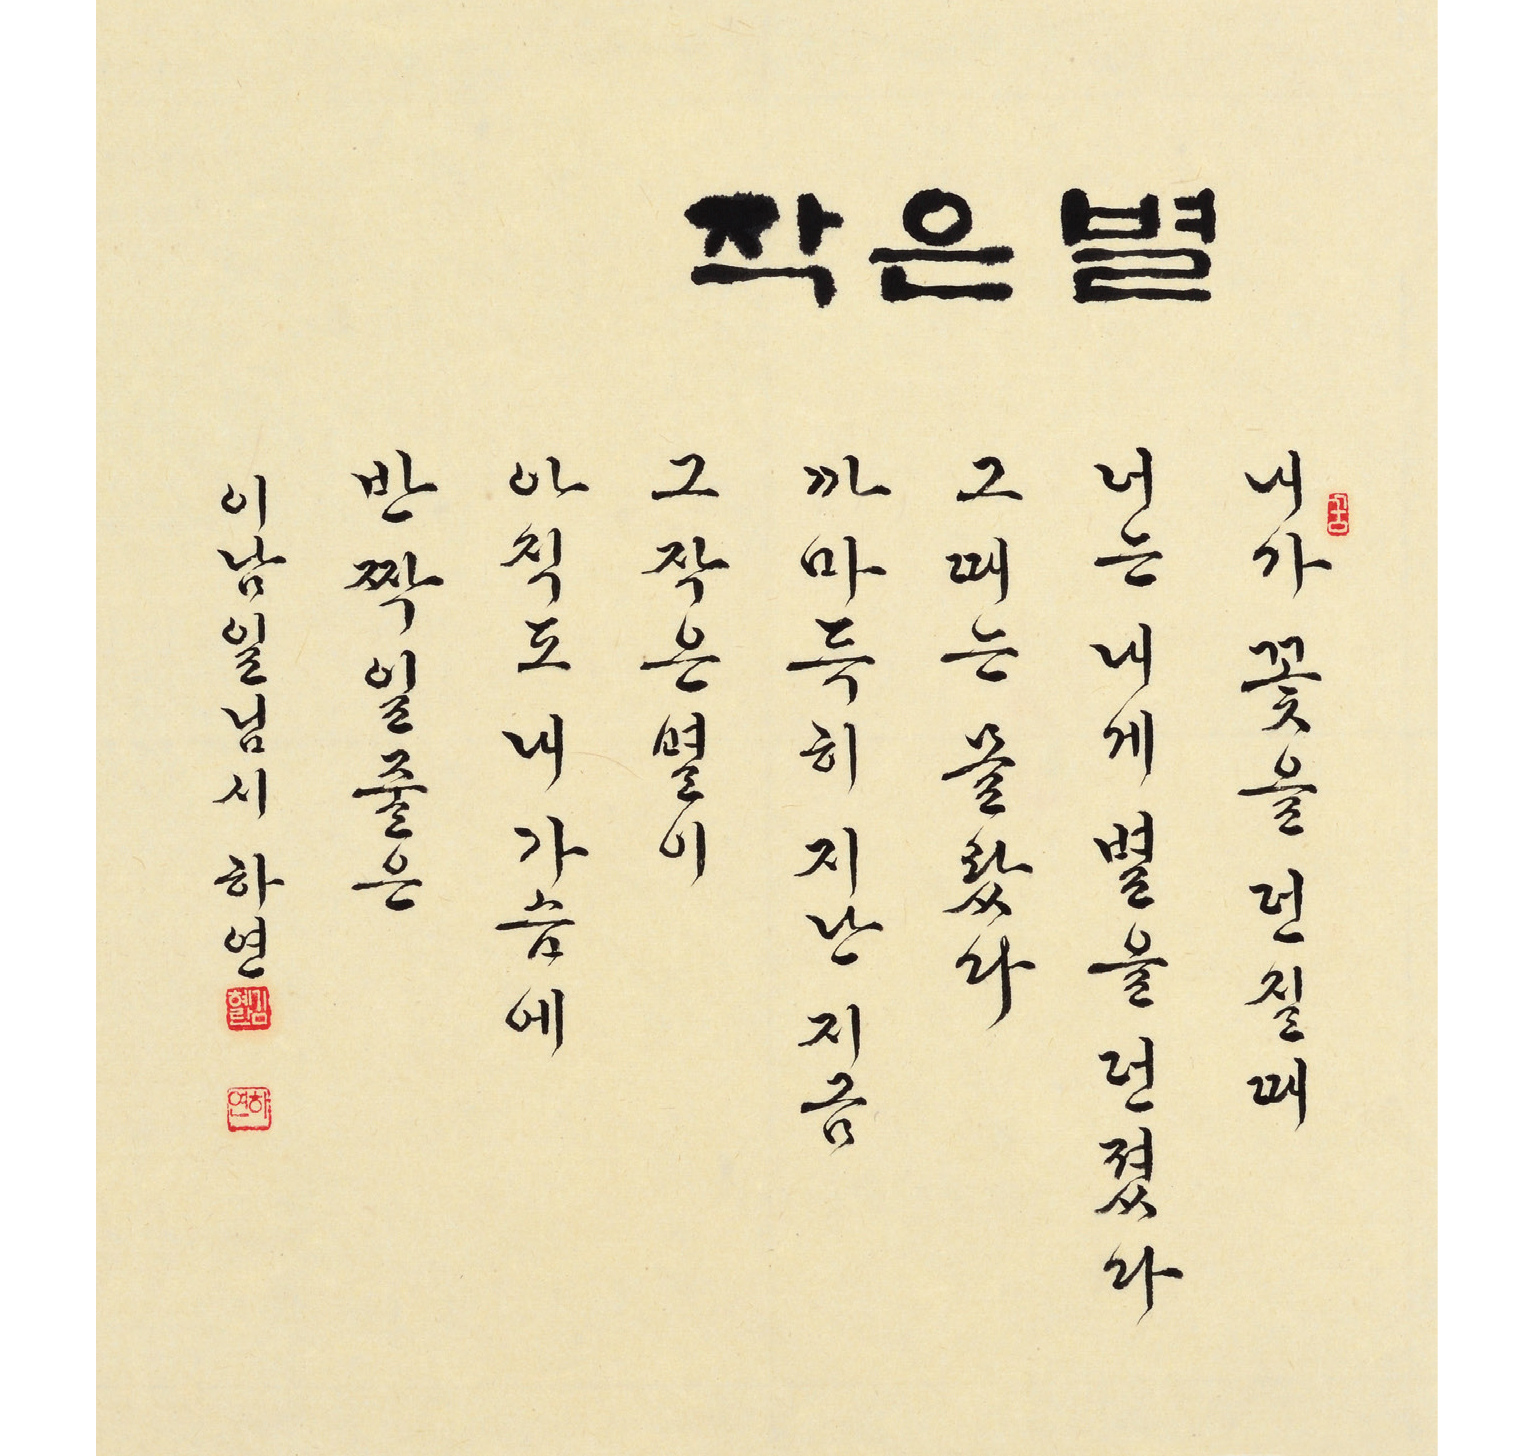 작은 별
내가 꽃을 던질때
너는 내게 별을 던졌라
그때는 몰랐라
까마득히 지난 지금
그 작은 별이
아직도 내 가슴에
반짝일 줄은
이남일님시 하연
하연